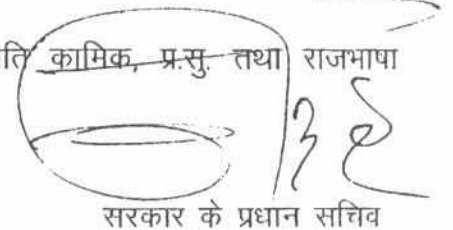 ति कामिक, प्र.सु. तथा राजभाषा
सरकार के प्रधान सचिव